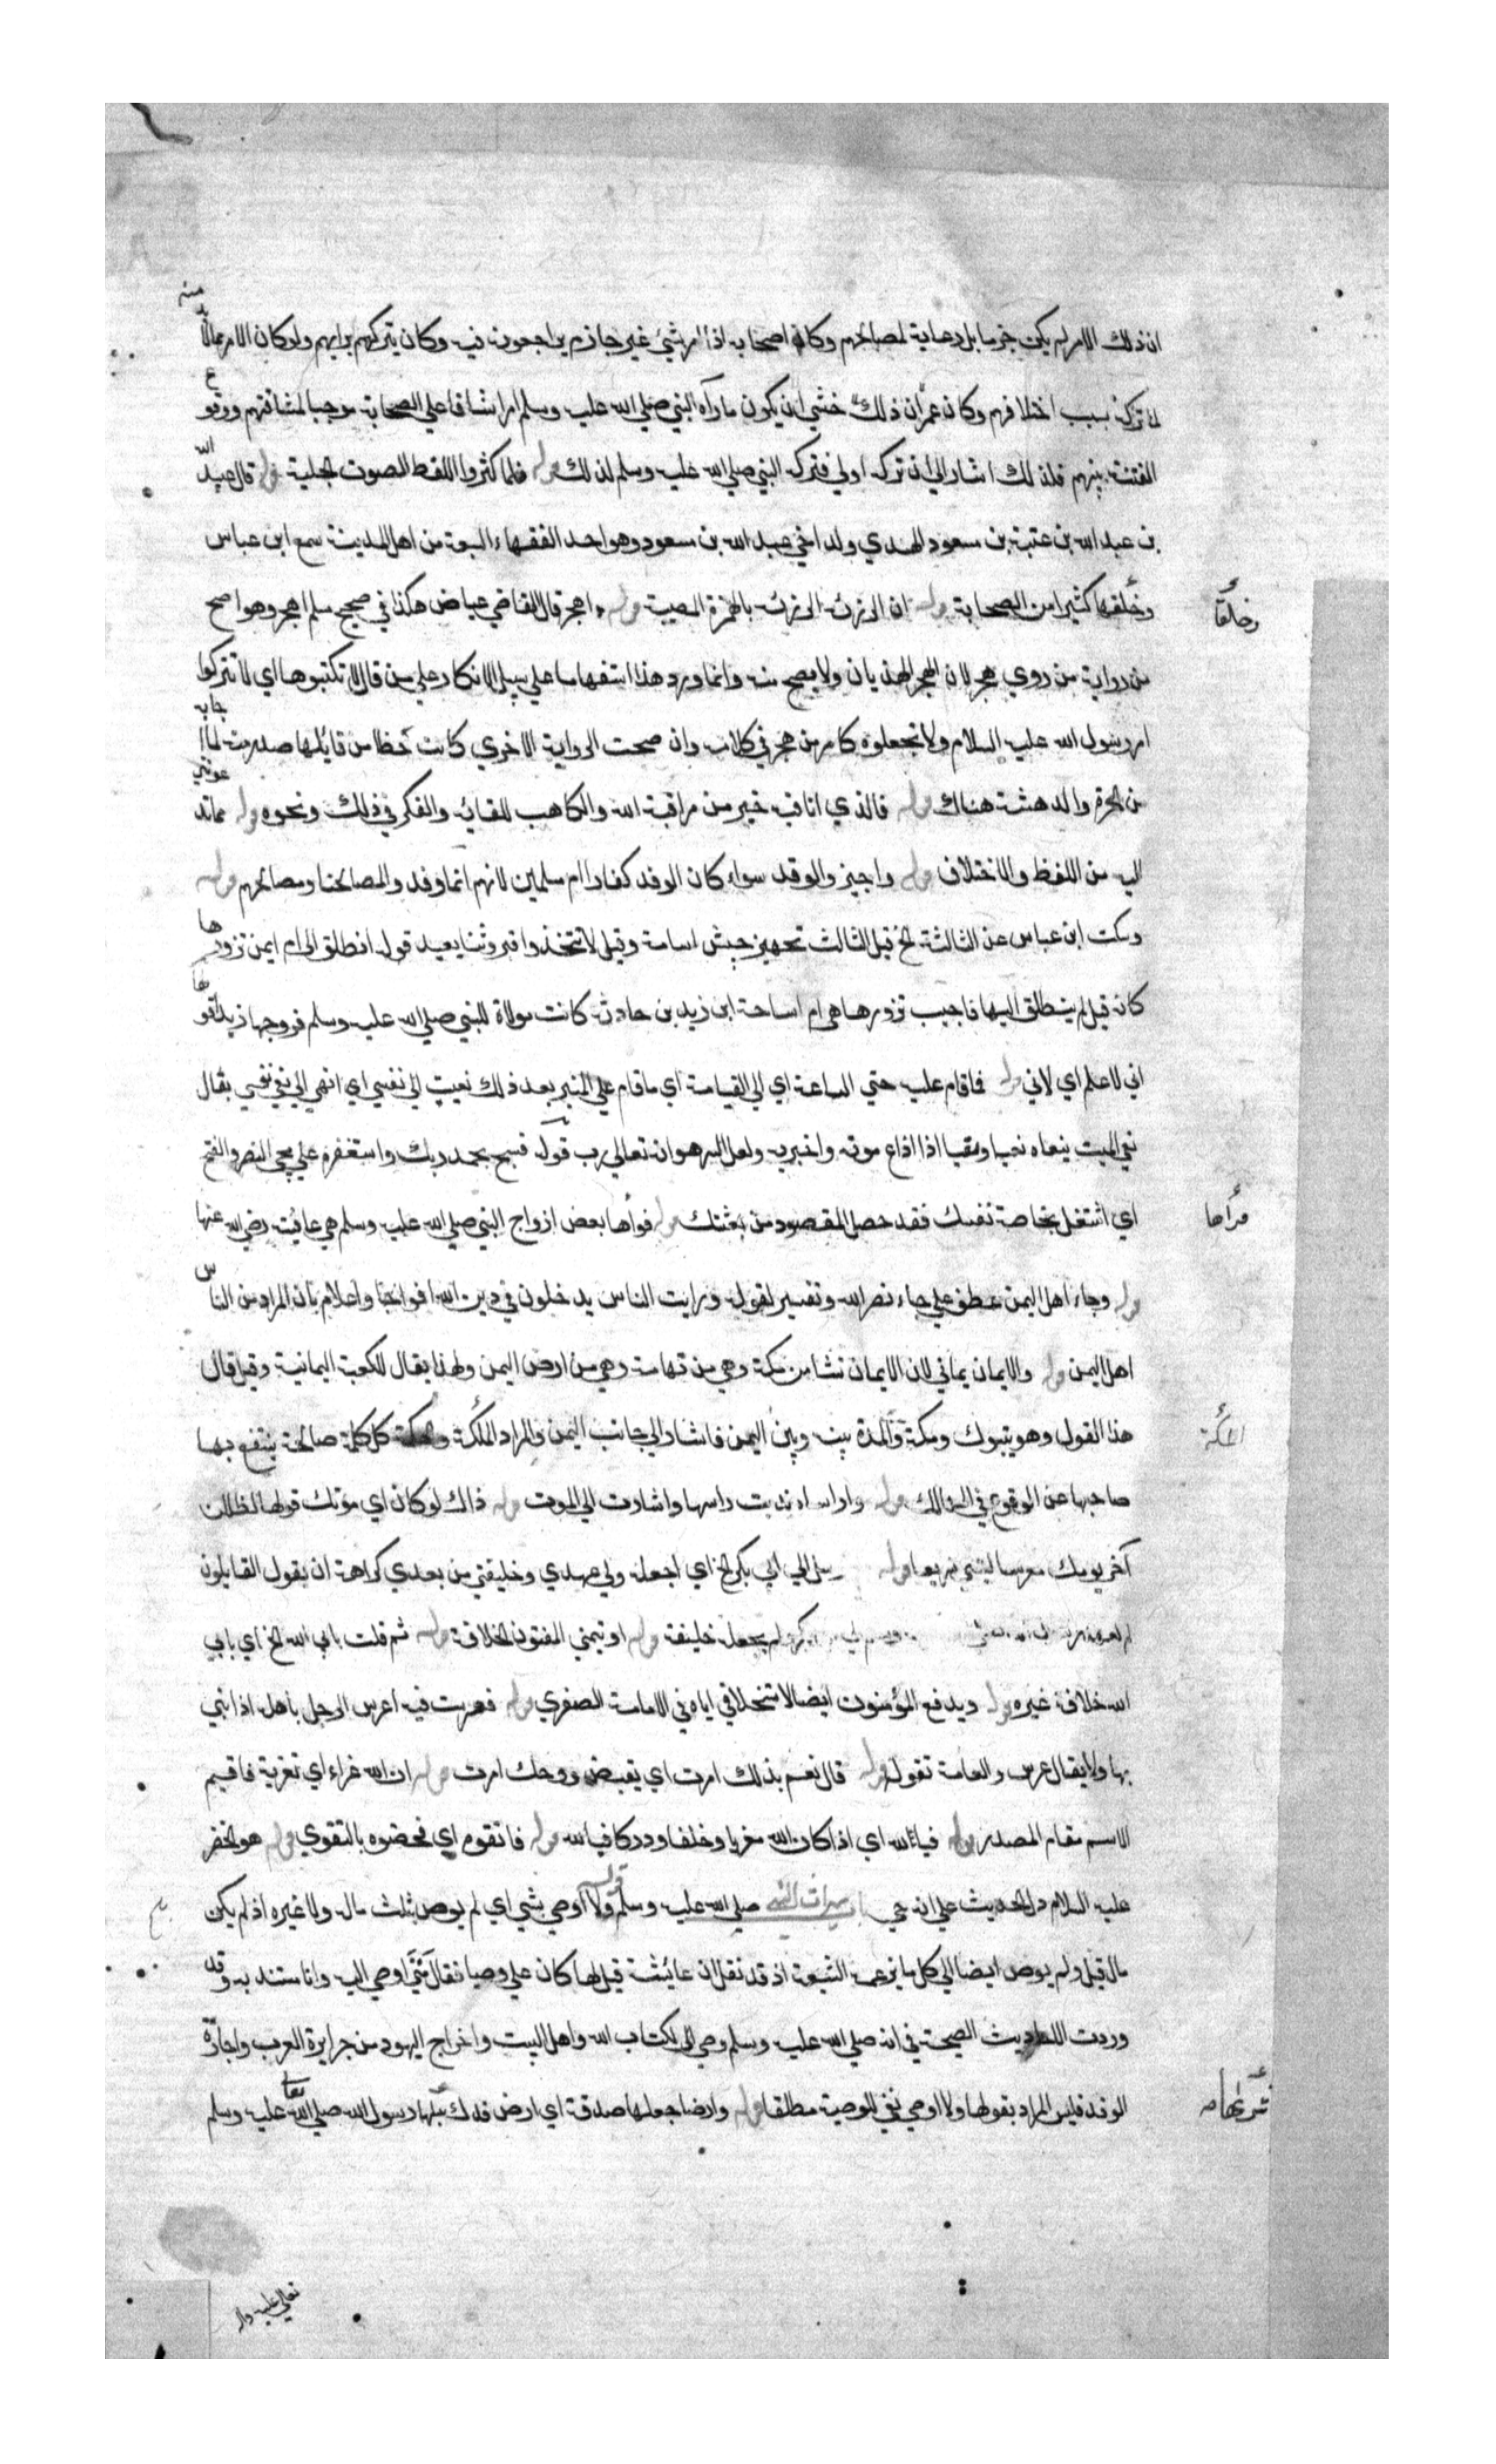 ان ذلك الامر لم يكن جزما بل رعاية لمصالحهم وكان اصحابه اذا امر بشيئ غير جازم يراجعون فيه وكان يتركهم برايهم ولو كان الامر مما لابد منه
لما تركه بسبب اختلافهم وكان عمران ذلك خشي ان يكون ما رآه النبي صلي الله عليه وسلم امرا شاقا علي الصحابة موجبا لمشاقتهم ووقوع
الفتنة بينهم فلذلك اشار الي ان تركه اولي فتركه النبي صلي الله عليه وسلم لذلك قوله فلما كثروا اللغط الصوت الجلية قوله قال عبيد الله
بن عبد الله بن عتبة بن مسعود الهدي ولد اخي عبد الله بن مسعود وهو احد الفقهاء السبعة من اهل المدينة سمع ابن عباس
وخلقا كثيرا من الصحابة قوله ان الرزية الرزية بالهمزة المصيبة قوله اهجر قال القاضي عياض هكذا في صحيح مسلم اهجر وهو اصح
من رواية من روي هجر لان الهجر الهذيان ولا يصح منه وانما ورد هذا استفهاما علي سبيل الانكار علي من قال لا تكتبوها اي لا تتركوا
امر رسول الله عليه السلام ولا تجعلوه كامر من هجر في كلامه وان صحت الرواية الاخري كانت خطأ من قايلها صدرت لما اجابه
من الحيرة والدهشة هناك قوله فالذي انا فيه خير من مراقبة الله والتاهب للقائه والفكر في ذلك ونحوه قوله مما تدعونني
اليه من اللغط والاختلاف قوله واجيزوا الوفد سواء كان الوفد كفارا ام مسلمين لانهم انما وفدوا لمصالحنا ومصالحهم قوله
وسكت ابن عباس عن الثالثة الخ قيل الثالث تجهيز جيش اسامة وقيل لا تتخذوا قبري وثنا يعبد قوله انطلق الي ام ايمن تزورها
كانه قيل لم ينطلق اليها فاجيب تزورها هي ام اسامة ابن زيد بن حارثة كانت مولاة للنبي صلي الله عليه وسلم فزوجها زيدا قولها
اني لا اعلم اي لاني قوله فما قام عليه حتي الساعة اي الي القيامة اي ما قام علي المنبر بعد ذلك نعيت الي نفسي اي انهي الي نعي نفسي يقال
نعي الميت ينعاه نعيا ونعيا اذا اذاع موته واخبر به ولعل السر هو انه تعالي رتب قوله فسبح بحمد ربك واستغفره علي مجي النصر والفتح
اي اشتغل بخاصة نفسك فقد حصل المقصود من بعثتك قوله فرأها بعض ازواج النبي صلي الله عليه وسلم هي عائشة رضي الله عنها
قوله وجاء اهل اليمن عطف علي جاء نصر الله وتفسير لقوله ورايت الناس يدخلون في دين الله افواجا واعلام بان المراد من الناس
اهل اليمن قوله والايمان يماني لان الايمان نشا من مكة وهي من تهامة وهي من ارض اليمن ولهذا يقال للكعبة اليمانية وقيل قال
هذا القول وهو بتبوك ومكة والمدة بينه وبين اليمن فاشار الي جانب اليمن والمراد المكة والحكمة كل كلمة صالحة ينتفع بها
صاحبها عن الوقوع في المهالك قوله واراساه ندبت راسها واشارت الي الموت قوله ذاك لو كان اي موتك قولها لظللت
آخر يومك معرسا قوله الي ابي بكر الخ اي اجعله ولي عهدي وخليفتي من بعدي كراهة ان يقول القايلون
لم يجعله خليفة قوله او يتمني المفتون الخلافة قوله ثم قلت يابي الله الخ اي يابي
الله خلافة غيره قوله ويدفع المؤمنون ايضا لاستخلافي اياه في الامامة الصغري قوله فعرست فيه اعرس الرجل باهله اذا بني
بها ولا يقال عرس والعامة تقوله قوله قال نعم بذلك امرت اي بقبض روحك امرت قوله ان في الله عزاء اي تعزية فاقيم
الاسم مقام المصدر قوله فبالله اي اذا كان الله معزيا وخلفا ودركا فبالله قوله فاتقوه اي فخصوه بالتقوي قوله هو الخضر
عليه السلام دل الحديث علي انه حي باب ميراث النبي صلي الله عليه وسلم قوله ولا اوصي بشي اي لم يوص بثلث ماله ولا غيره اذ لم يكن له
مال قيل ولم يوص ايضا الي كل ما يزعمه الشيعة اذ قد نقل ان عائشة قيل لها كان علي وصيا فقال متي اوصي اليه وانا مسنده به وقد
وردت الاحاديث الصحيحة في انه صلي الله عليه وسلم وصي الي كتاب الله واهل البيت واخراج اليهود من جزيرة العرب واجازة
الوفد فليس المراد بقولها ولا اوصي نفي الوصية مطلقا قوله وارضا جعلها صدقة اي ارض فدك سبلها رسول الله صلي الله تعا عليه وسلم
وخلقا
فرأها
المكة
تعالي عليه واله